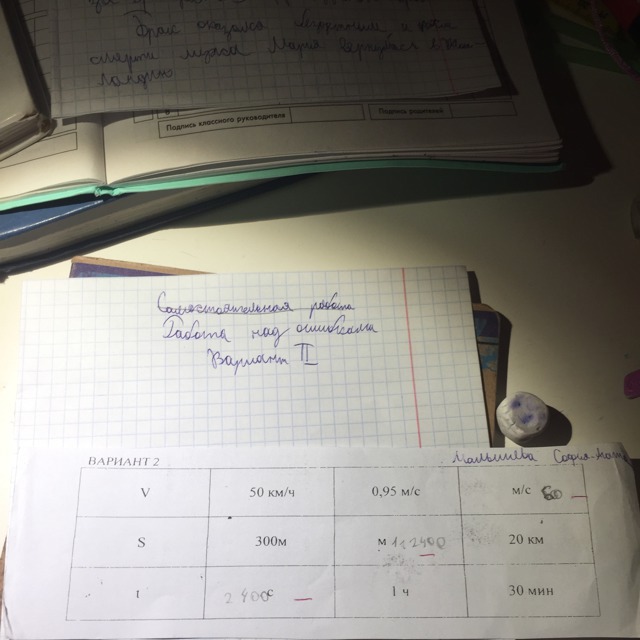 Фракс оказался и после
смерти мужа Мария вернулась в Шот-
ландию
Подпись классного руководителя
Подпись родителей
Самостоятельная работа
Работа над ошибками
Вариант II
ВАРИАНТ 2
Малышева София
V 50 км/ч 0,95 м/с м/с 60
S 300м м 20 км
t 2400 с 1 ч 30 мин